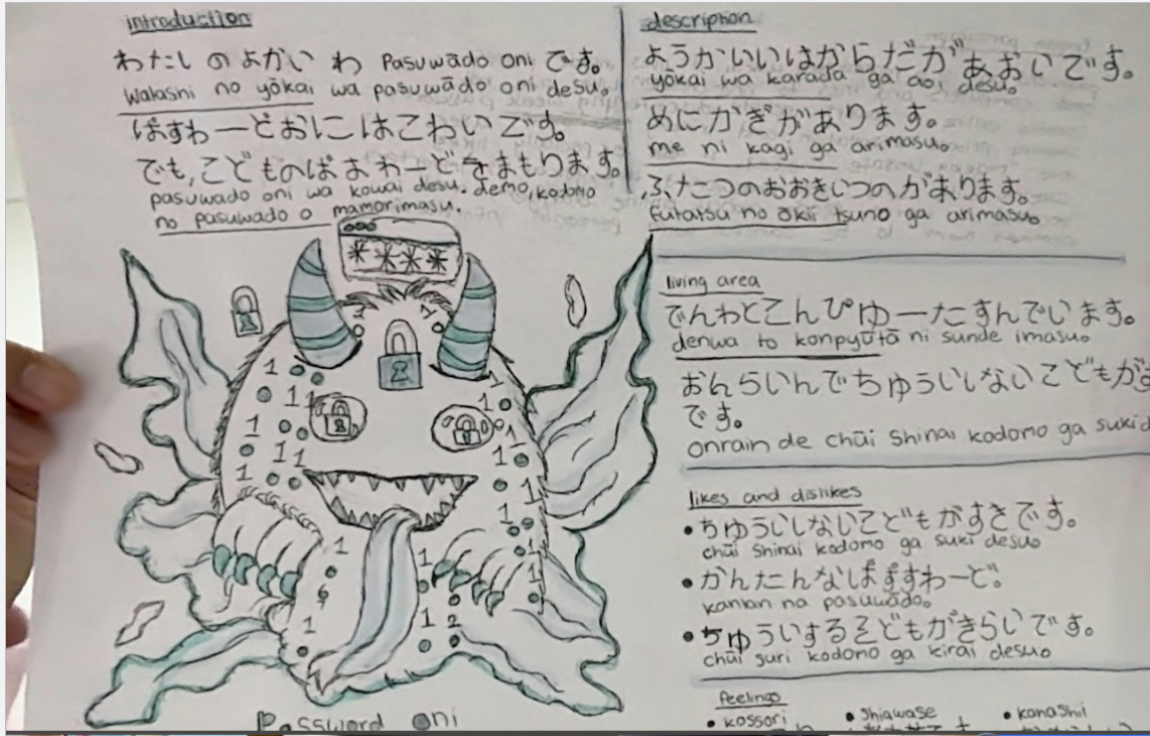 introduction
わたしのよかい わ Pasuwādo oni です。
Watashi no yōkai wa pasuwādo oni desu。
ぱすわーどおにはこわいです。
でも,こどものぱすわーどをまもります。
pasuwado oni wa kowai desu. demo, kodomo
no pasuwado o mamorimasu.
****
Password oni
description
ようかいいはからだが あおいです。
yōkai wa karada ga aoi desu。
めにかぎがあります。
me ni kagi ga arimasu。
ふたつのおおきいつのがあります。
futatsu no ōkii tsuno ga arimasu。
living area
でんわとこんぴゆーたすんでいます。
denwa to konpyūtā ni sunde imasu。
おんらいんでちゅういしないこどもがす
です。
onrain de chūi shinai kodomo ga suki d
likes and dislikes
•ちゆういしないこどもがすきです。
chūi shinai kodomo ga suki desu。
•かんたんなぱすすわーど。
kantan na pasuwādo。
•ちゅういするこどもがきらいです。
chūi suri kodomo ga kirai desu。
feelings
•kossori •shiawase •kanashii